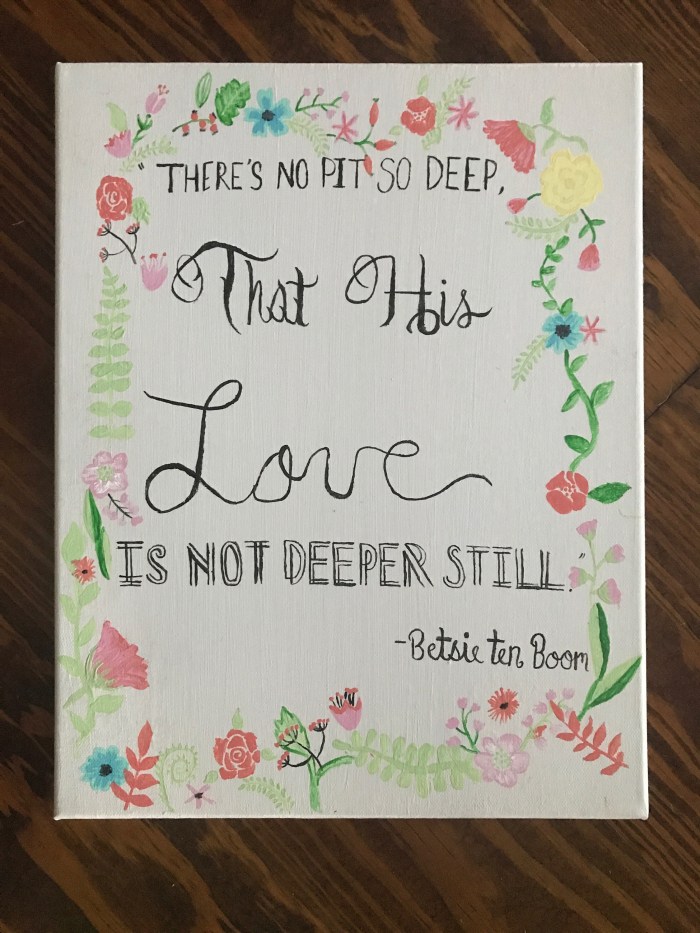 "THERE'S NO PIT SO DEEP,
That His
Love
IS NOT DEEPER STILL."
-Betsie ten Boom